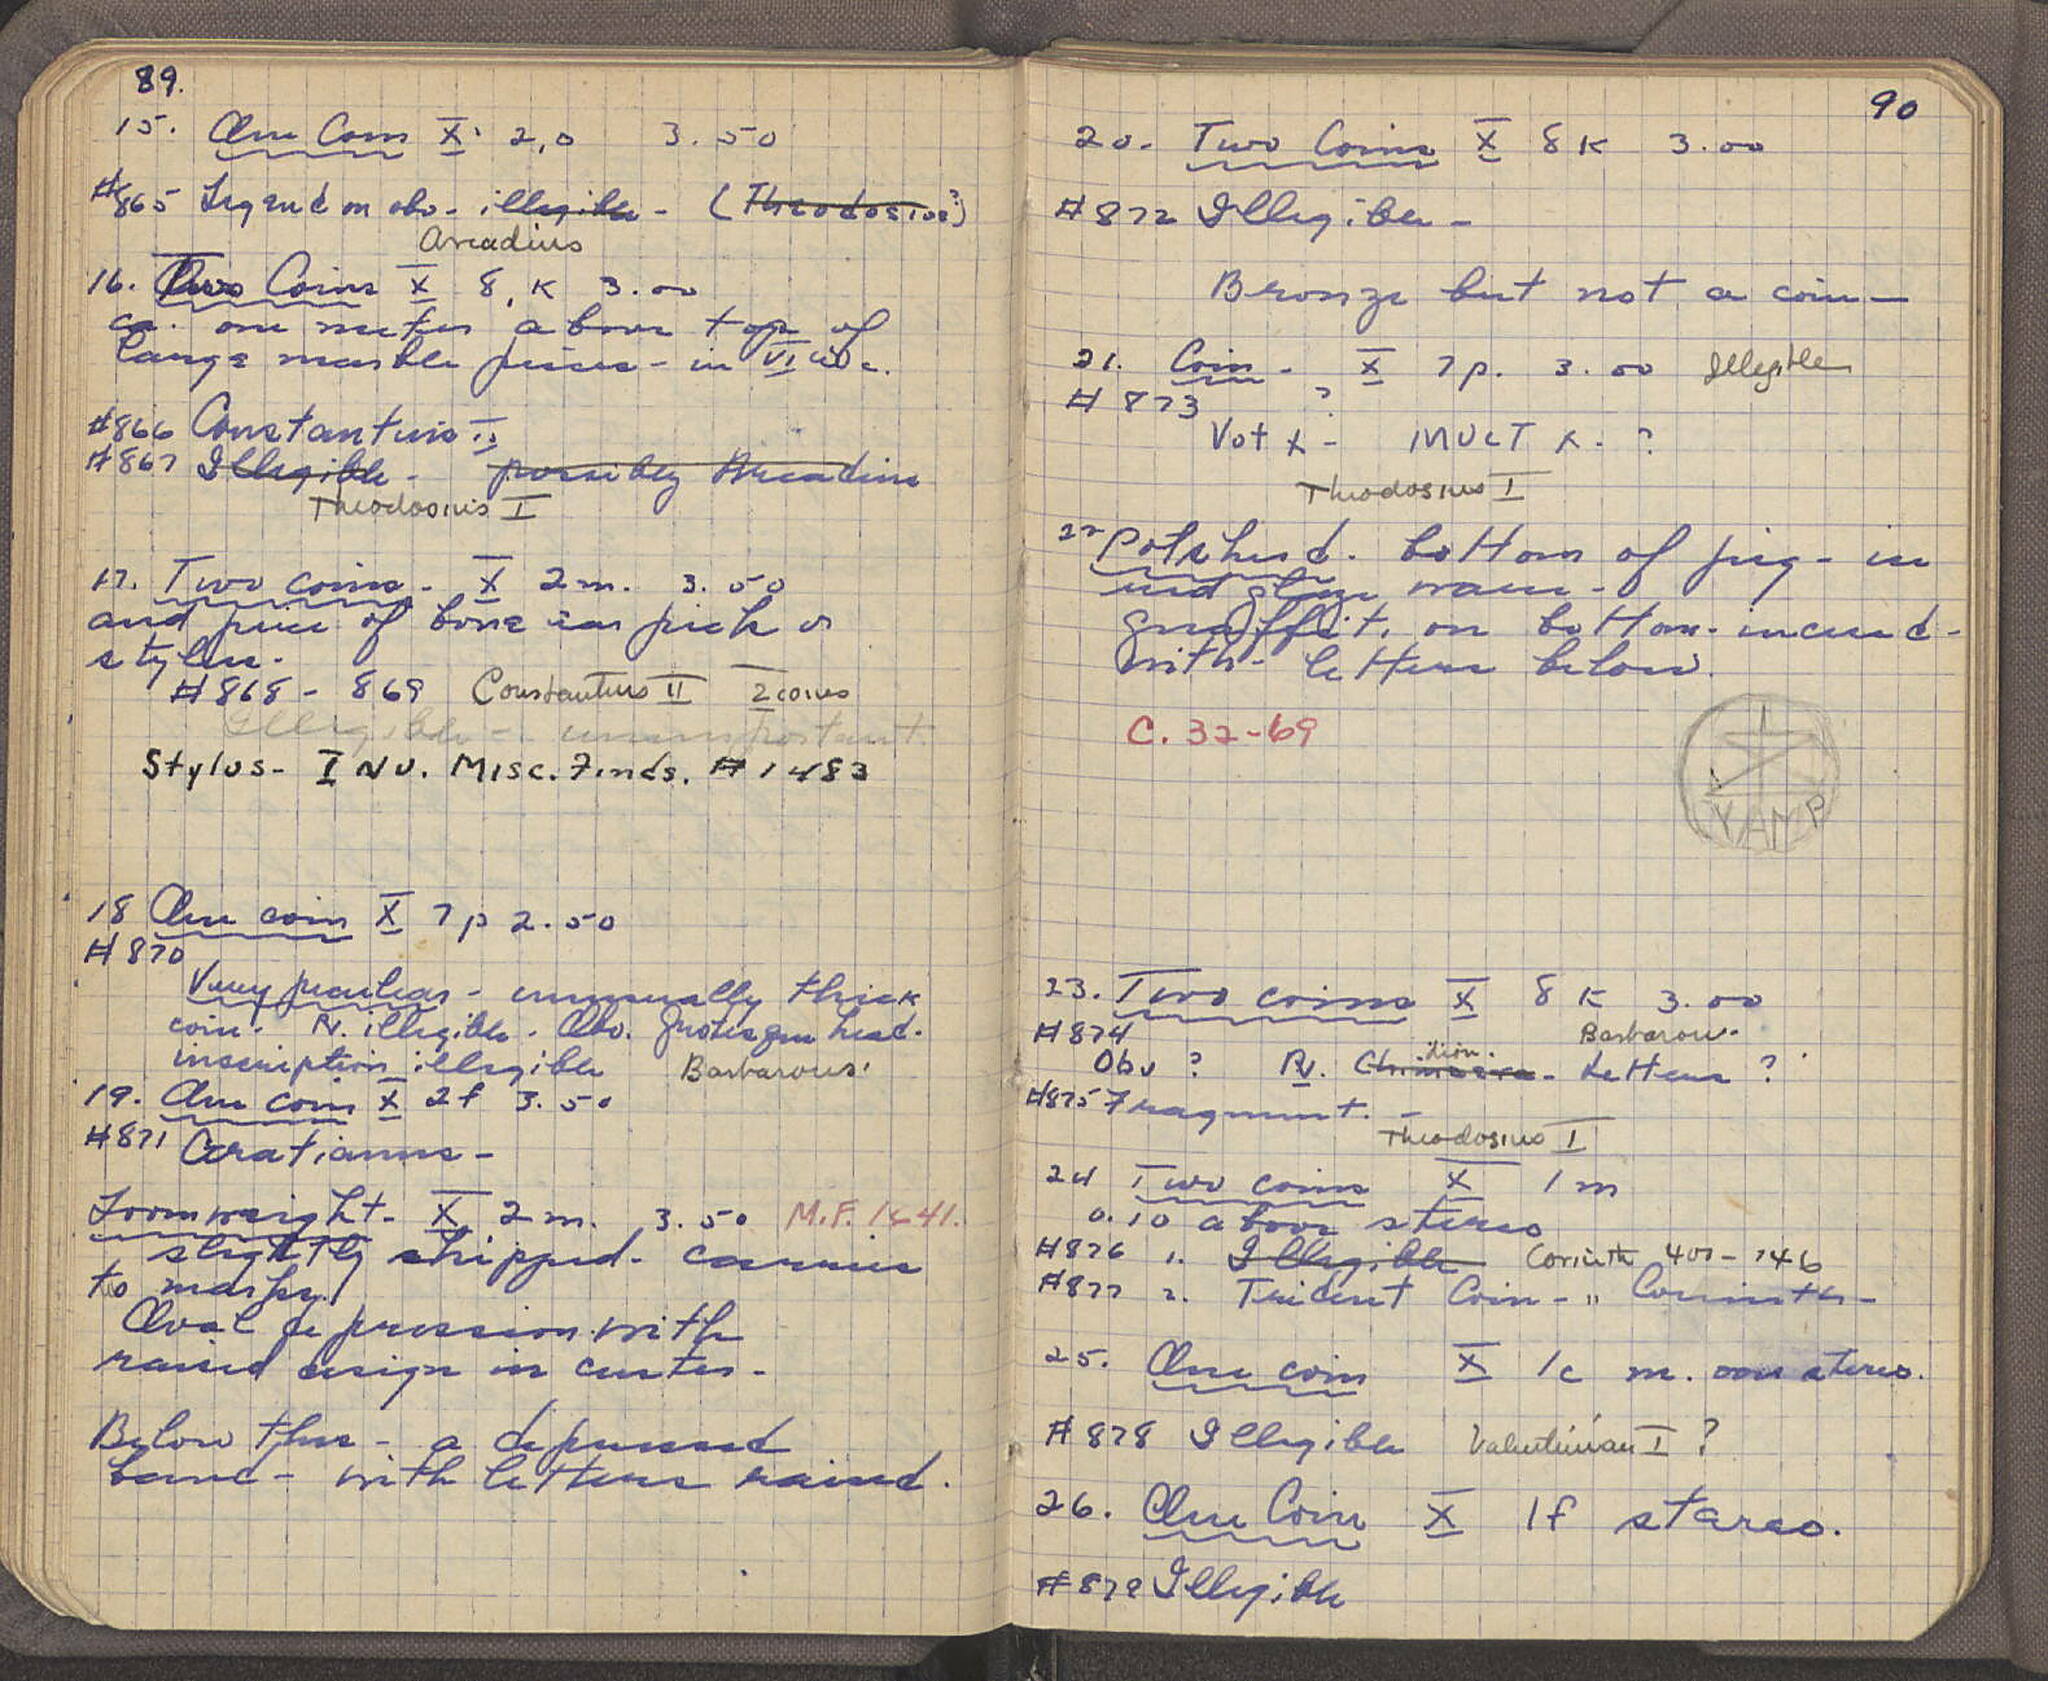 89.
15. One Coin X. 2,0 3.50
#865 Legend on obv- illegible - (Theodosius?)
Arcadius
16. Two Coins X 8, K 3.00
ca. one meter above top of
large marble pieces - in VI
#866 Constantius II
#867 Illegible - possibly Arcadius
Theodosius I
17. Two coins - X 2 m. 3.50
and piece of bone ear pick or
stylus.
#868 - 869 Constantius II 2 coins
Illegible - unimportant
Stylus - INV. Misc. Finds. #1483
18 One coin X 7p 2.50
#870
Very peculiar - unusually thick
coin. Rv. illegible. Obv. Grotesque head.
inscription illegible Barbarous'
19. One coin X 2f 3.50
#871 Gratianus -
Loomweight - X 2 m. 3.50 M.F. 1441.
slightly chipped - carries
to marks!
Oval depression with
raised design in center -
Below this - a depressed
band - with letters raised.
90
20. Two Coins X 8 K 3.00
#872 Illegible -
Bronze but not a coin -
21. Coin - X 7p. 3.00 Illegible
#873 ?
Vot X - MULT X. ?
Theodosius I
22 Potsherd. bottom of jug - in
red glaze ware -
graffito. on bottom - incised -
with - letters below.
C. 32-69
YAMP
23. Two coins X 8 K 3.00
#874 Barbarous.
lion.
Obv ? Rv. Chimaera - Letters ?
#875 Fragment. -
Theodosius I
24 Two coins X 1 m
0.10 above stereo
#876 1. Illegible Corinth 400-146
#877 2. Trident Coin - " Corinth -
25. One coin X 1c m. stereo.
#878 Illegible Valentinian I ?
26. One Coin X 1f stereo.
#879 Illegible